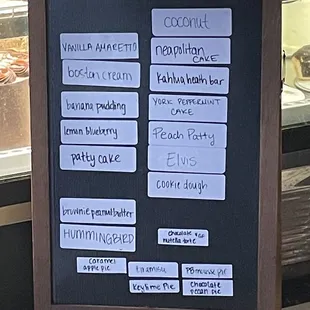 coconut
VANILLA AMARETTO
neapolitan
CAKE
boston cream
Kahlua heath bar
banana pudding
YORK PEPPERMINT
CAKE
lemon blueberry
Peach Patty
patty cake
Elvis
cookie dough
brownie peanut butter
HUMMINGBIRD
chocolate
nutella torte
caramel
apple pie
tiramisu
PB mousse pie
Key lime Pie
chocolate
pecan pie